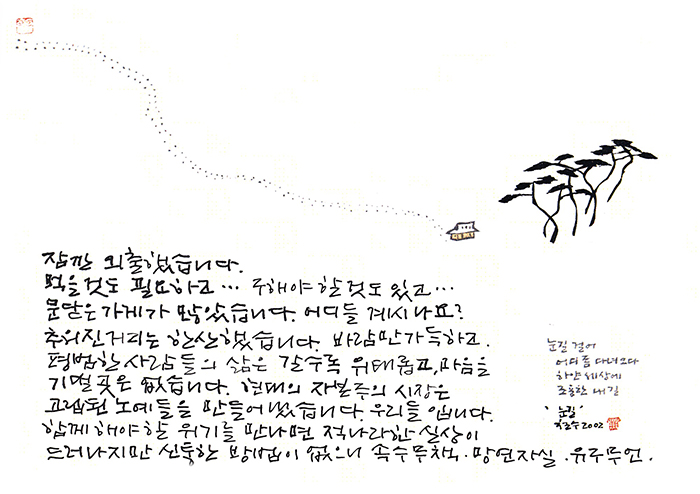 잠깐 외출했습니다.
먹을것도 필요하고… 구해야 할것도 있고…
문닫은가게가 많았습니다. 어디들 계시나요?
추워진거리는 한산했습니다. 바람만가득하고.
평범한 사람들의 삶은 갈수록 위태롭고, 마음을
기댈 곳은 없습니다. 현대의 자본주의 시장은
고립된 노예들을 만들어냈습니다. 우리들입니다.
함께 해야할 위기를 만나면 적나라한 실상이
드러나지만 신통한 방법이 없으니 속수무책. 망연자실. 유구무언.
눈길 걸어
어디쯤 다녀오다
하얀 세상에
조용한 내 길
'눈길'
이철수 2002